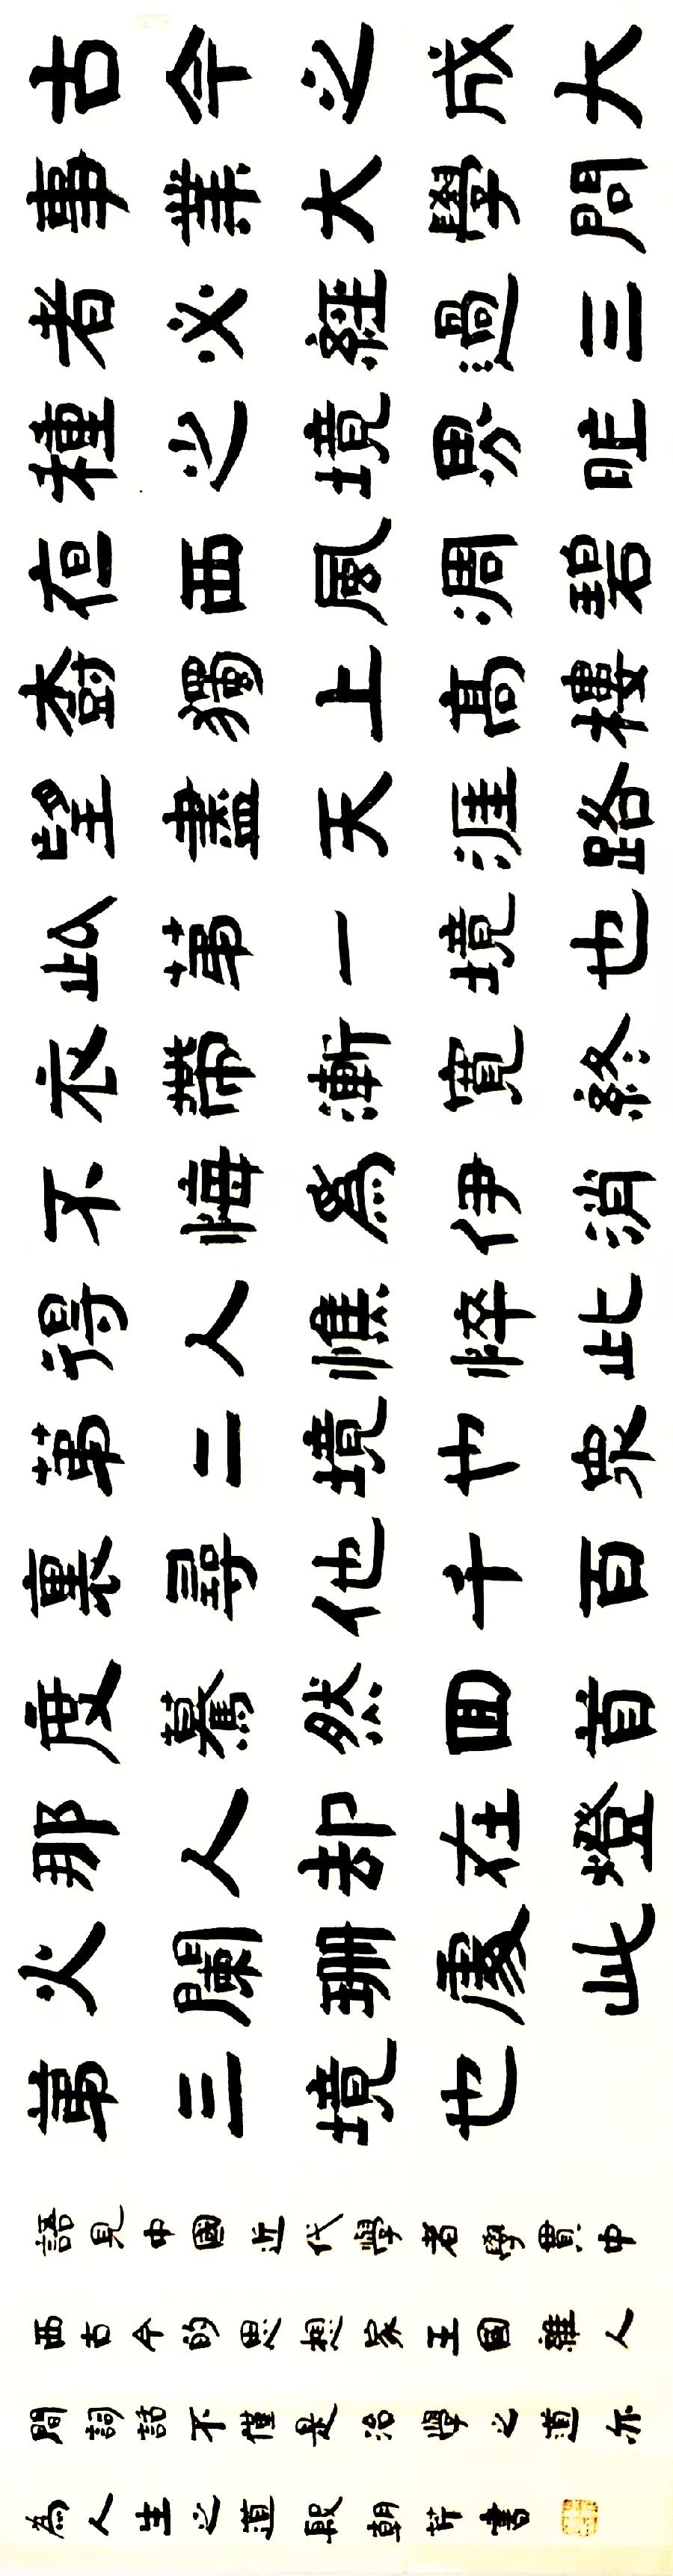 古今之成大
事業大學問
者必經過三
種之境界昨
夜西風凋碧
樹獨上高樓
望盡天涯路
此第一境也
衣帶漸寬終
不悔為伊消
得人憔悴此
第二境也眾
裏尋他千百
度驀然回首
那人却在燈
火闌珊處此
第三境也
語見中國近代學者學貫中
西古今的思想家王國維人
間詞話不僅是治學之道亦
為人生之道朝芹書